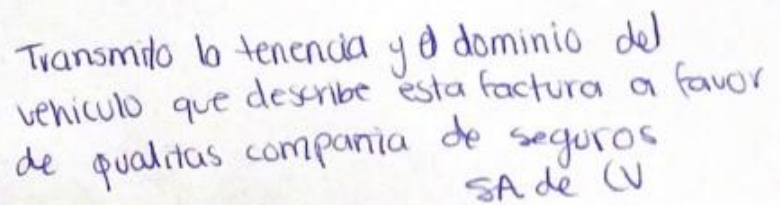 Transmito la tenencia y el dominio del
vehiculo que describe esta factura a favor
de qualitas compania de seguros
SA de CV